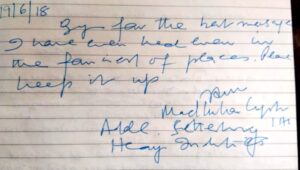 19/6/18
By far the best massage
I have ever had even in
the fanciest of places. Please
keep it up
Addl. Secretary
Heavy Industries